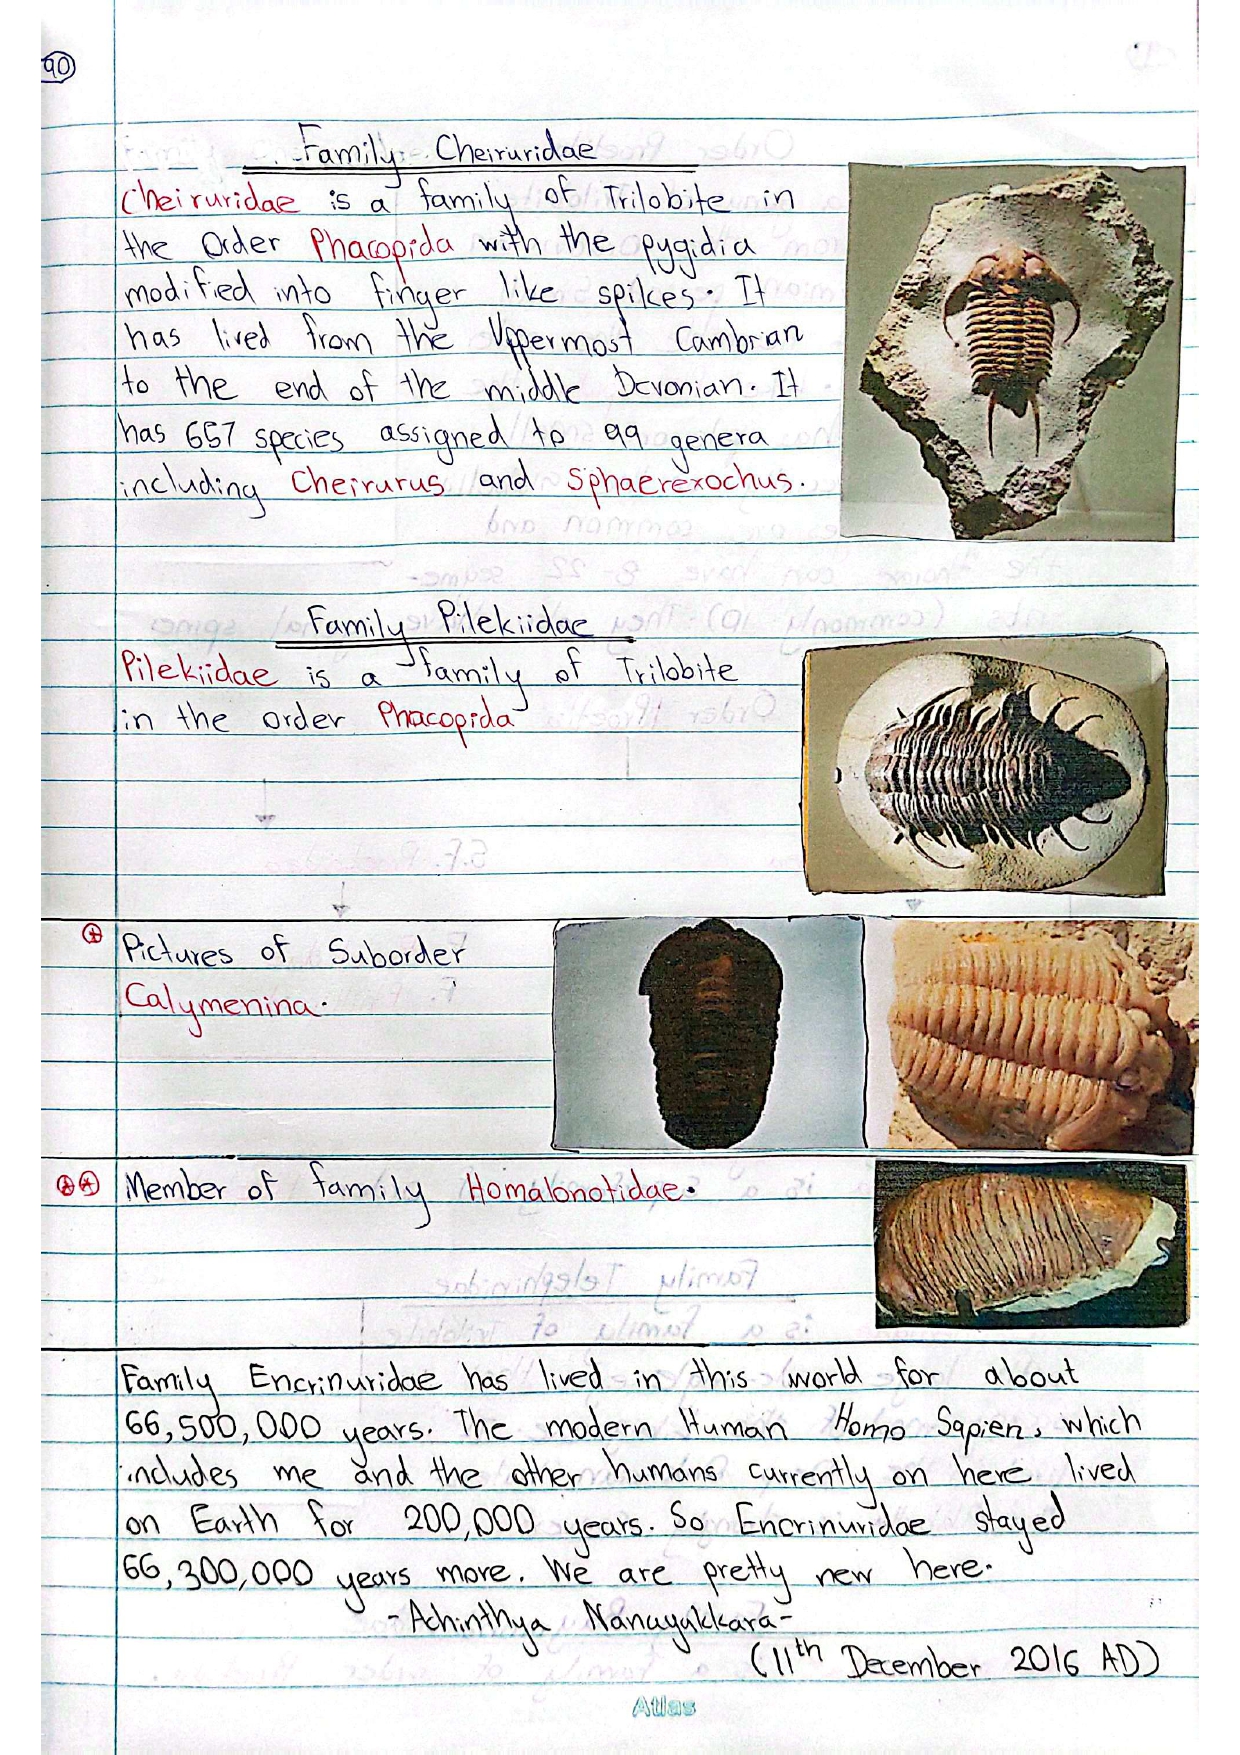 90
Family Cheiruridae
Cheiruridae is a family of Trilobite in
the Order Phacopida with the pygidia
modified into finger like spikes. It
has lived from the Uppermost Cambrian
to the end of the middle Devonian. It
has 657 species assigned to 99 genera
including Cheirurus and Sphaerexochus.
Family Pilekiidae
Pilekiidae is a family of Trilobite
in the order Phacopida
Pictures of Suborder
Calymenina.
Member of family Homalonotidae.
Family Encrinuridae has lived in this world for about
66,500,000 years. The modern Human Homo Sapien, which
includes me and the other humans currently on here lived
on Earth for 200,000 years. So Encrinuridae stayed
66,300,000 years more. We are pretty new here.
- Achinthya Nanayakkara -
(11th December 2016 AD)
Atlas